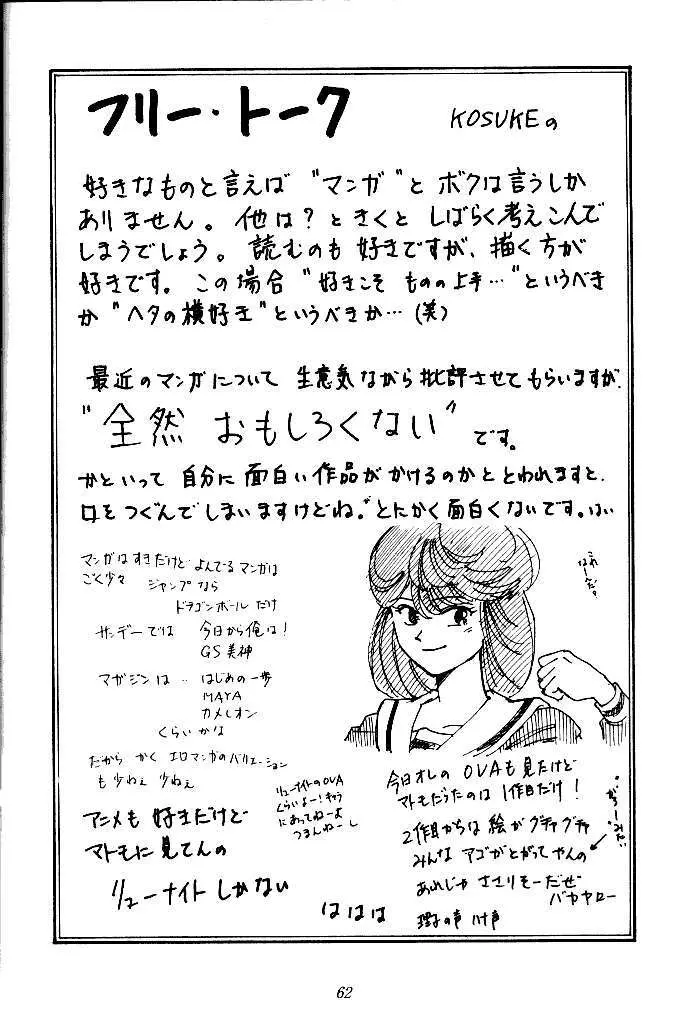 フリー・トーク
KOSUKEの
好きなものと言えば"マンガ"とボクは言うしか
ありません。他は?ときくとしばらく考えこんで
しまうでしょう。読むのも好きですが、描く方が
好きです。この場合"好きこそものの上手…"というべき
か"ヘタの横好き"というべきか…(笑)
最近のマンガについて生意気ながら批評させてもらいますが、
"全然おもしろくない"です。
かといって自分に面白い作品がかけるのかととわれますと、
口をつぐんでしまいますけどね。とにかく面白くないです。はい
マンガはすきだけどよんでるマンガは
ごく少々 ジャンプなら
ドラゴンボールだけ
サンデーでは 今日から俺は!
GS美神
マガジンは… はじめの一歩
MAYA
カメレオン
くらいかな
だからかくエロマンガのバリエーション
も少ねぇ少ねぇ
アニメも好きだけど
マトモに見てんの
リューナイトしかない
リューナイトのOVA
くらいよー!キャラ
にあってねーよ
つまんねーし
ははは
これ
だ。
今日オレのOVAも見たけど
マトモだったのは1作目だけ!
2作目からは絵がグチャグチャ
みんなアゴがとがってやんの
あれじゃささりそーだぜ
バカヤロー
理子の声